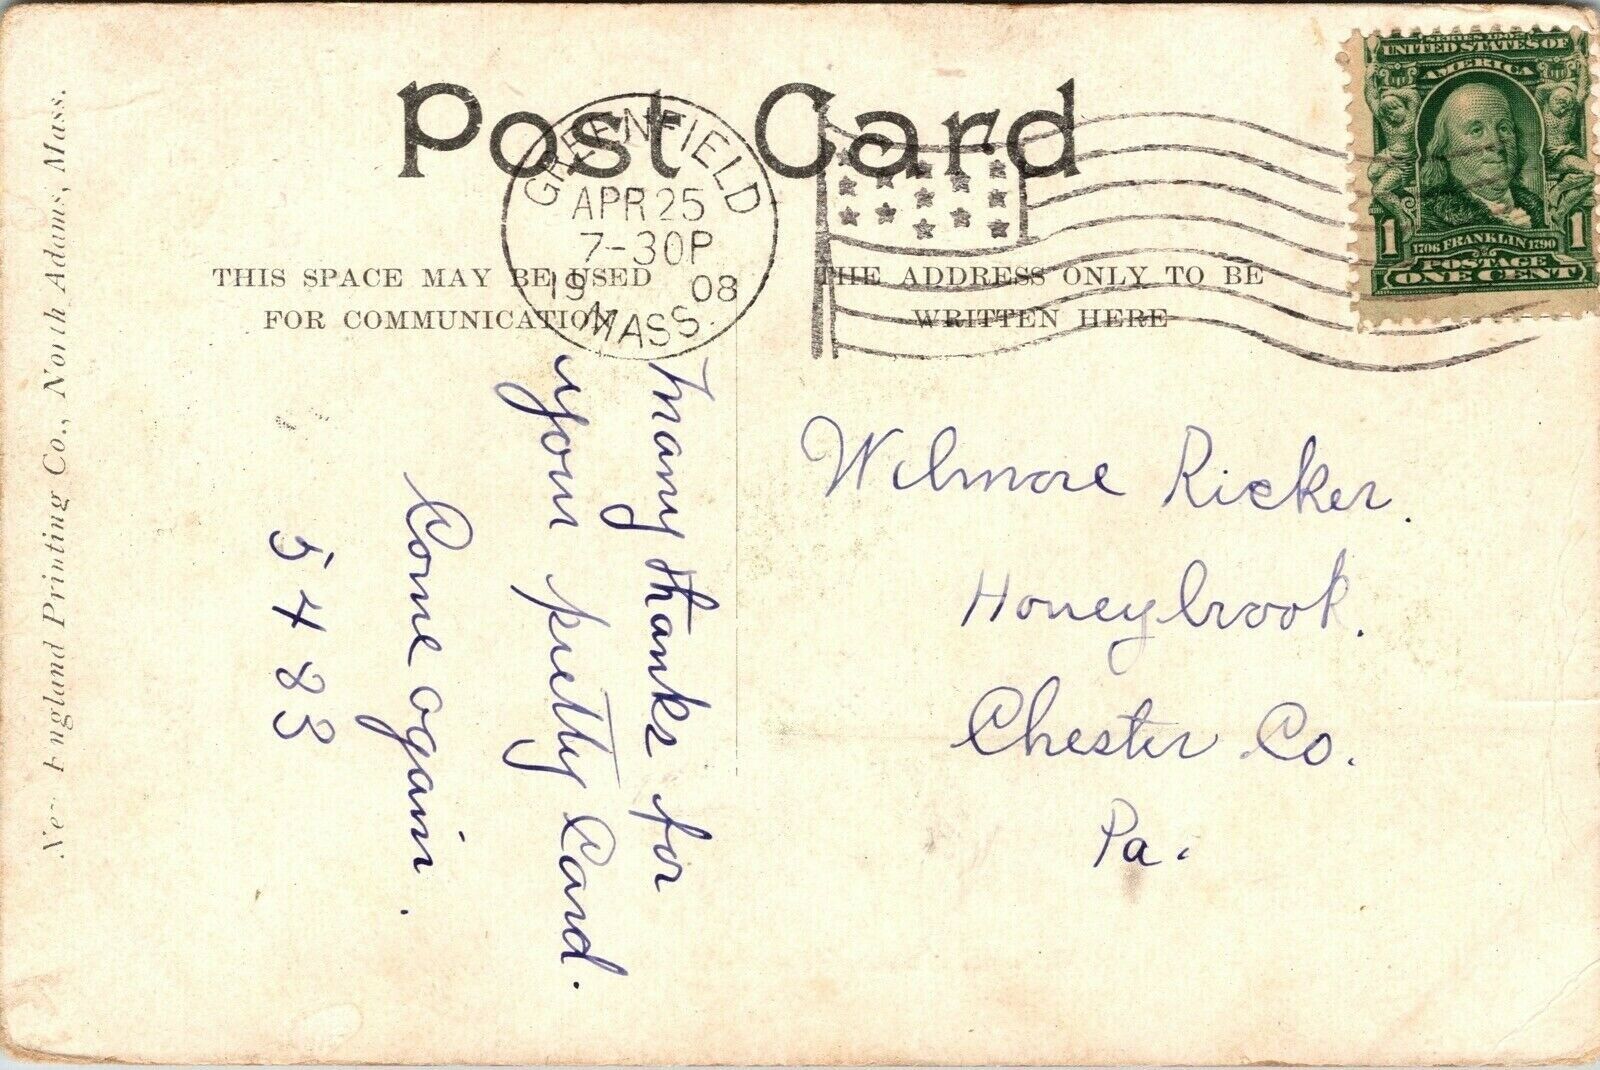 Post Card
GREENFIELD
APR 25
7-30P
1908
MASS.
SERIES 1902
UNITED STATES OF
AMERICA
1 1706 FRANKLIN 1790 1
POSTAGE
ONE CENT
THIS SPACE MAY BE USED
FOR COMMUNICATION
THE ADDRESS ONLY TO BE
WRITTEN HERE
Many thanks for
your pretty Card.
Come again.
5483
Wilmore Ricker.
Honeybrook.
Chester Co.
Pa.
New England Printing Co., North Adams, Mass.